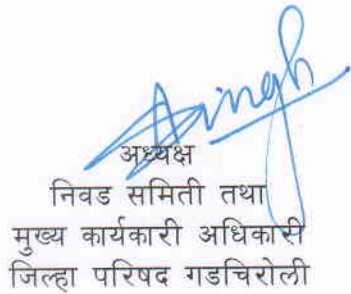 Asingh
अध्यक्ष
निवड समिती तथा
मुख्य कार्यकारी अधिकारी
जिल्हा परिषद गडचिरोली